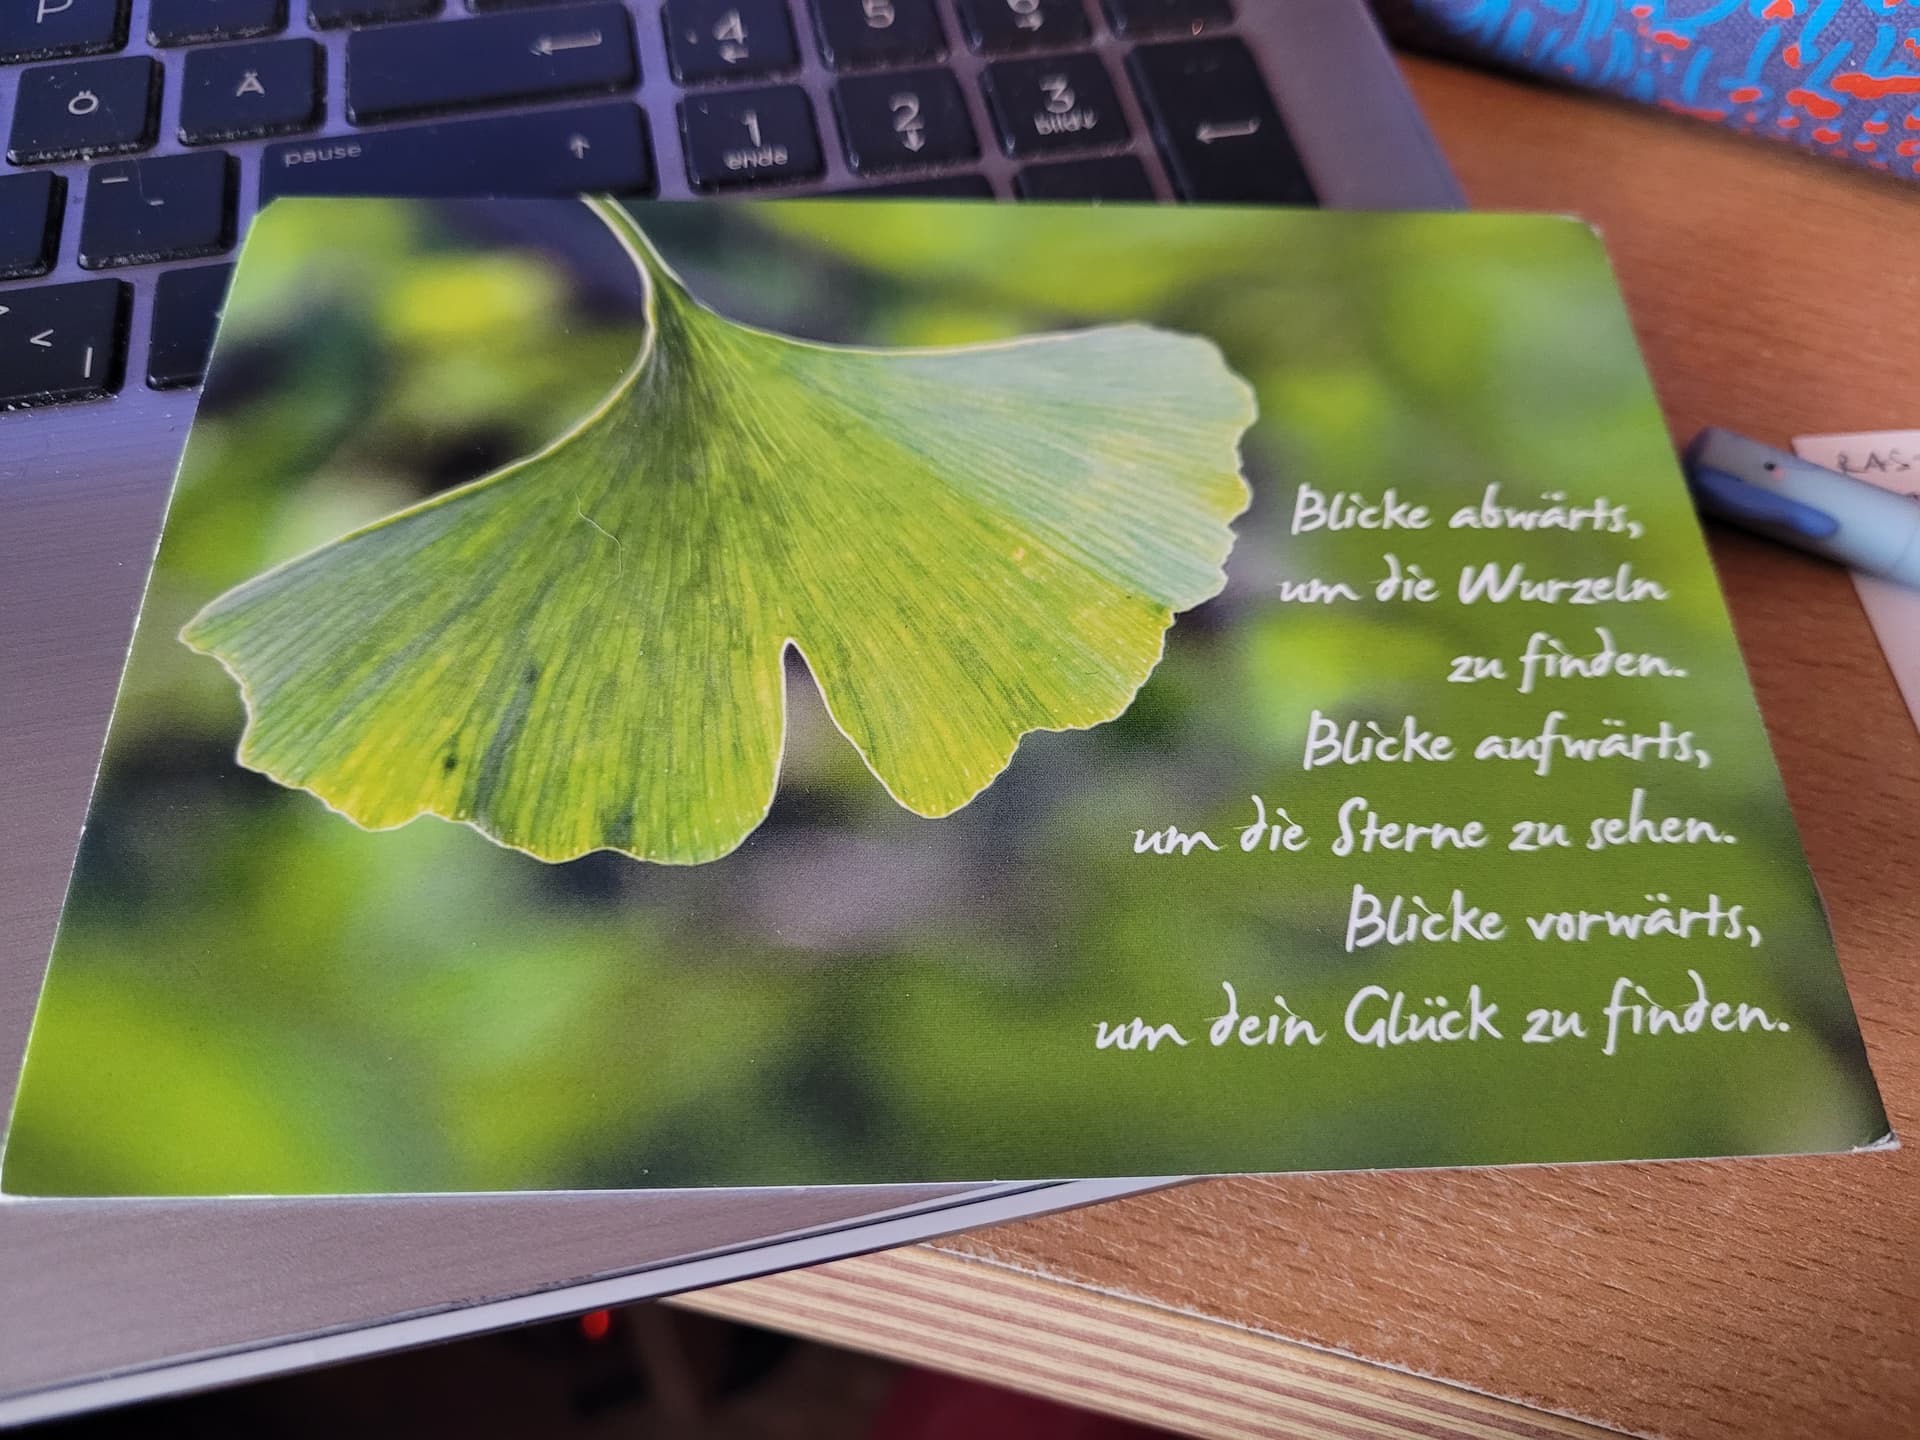 P
4
5
6
Ö
Ä
1
ende
2
3
bild
pause
<
|
RAS
Blicke abwärts,
um die Wurzeln
zu finden.
Blicke aufwärts,
um die Sterne zu sehen.
Blicke vorwärts,
um dein Glück zu finden.